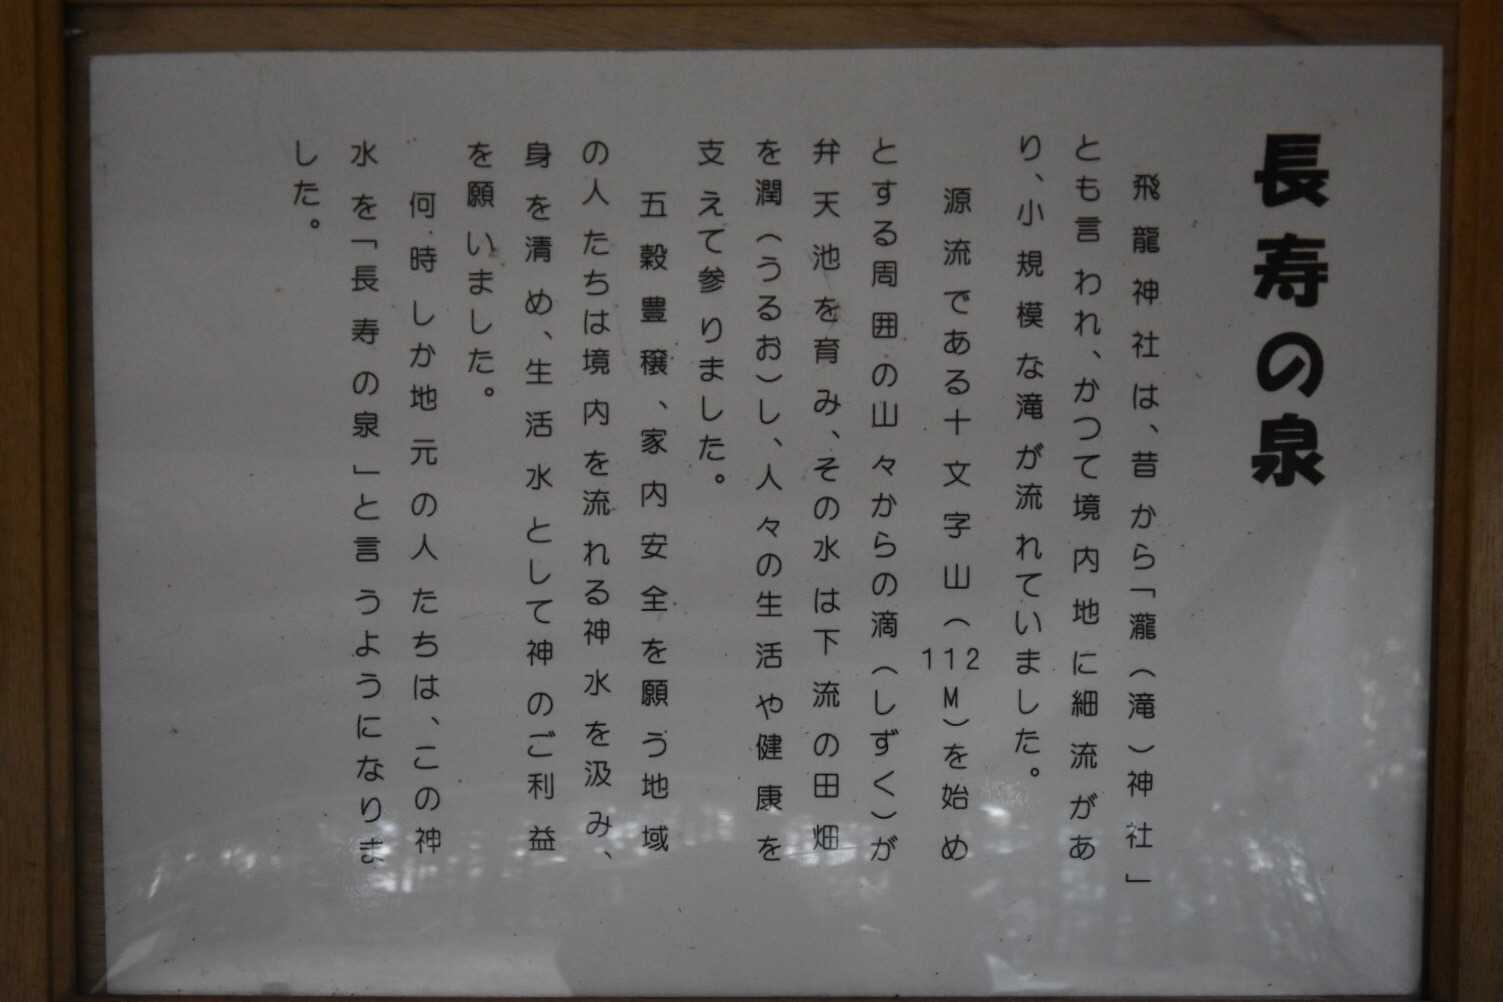 長寿の泉
飛龍神社は、昔から「瀧（滝）神社」
とも言われ、かつて境内地に細流があ
り、小規模な滝が流れていました。
源流である十文字山（112M）を始め
とする周囲の山々からの滴（しずく）が
弁天池を育み、その水は下流の田畑
を潤（うるお）し、人々の生活や健康を
支えて参りました。
五穀豊穣、家内安全を願う地域
の人たちは境内を流れる神水を汲み、
身を清め、生活水として神のご利益
を願いました。
何時しか地元の人たちは、この神
水を「長寿の泉」と言うようになりま
した。